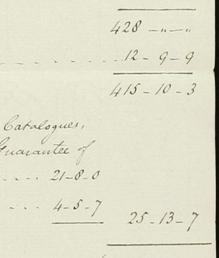 428 - " - "
12 - 9 - 9
415 - 10 - 3
Catalogues,
Guarantee of
21-8-0
4-5-7 25-13-7